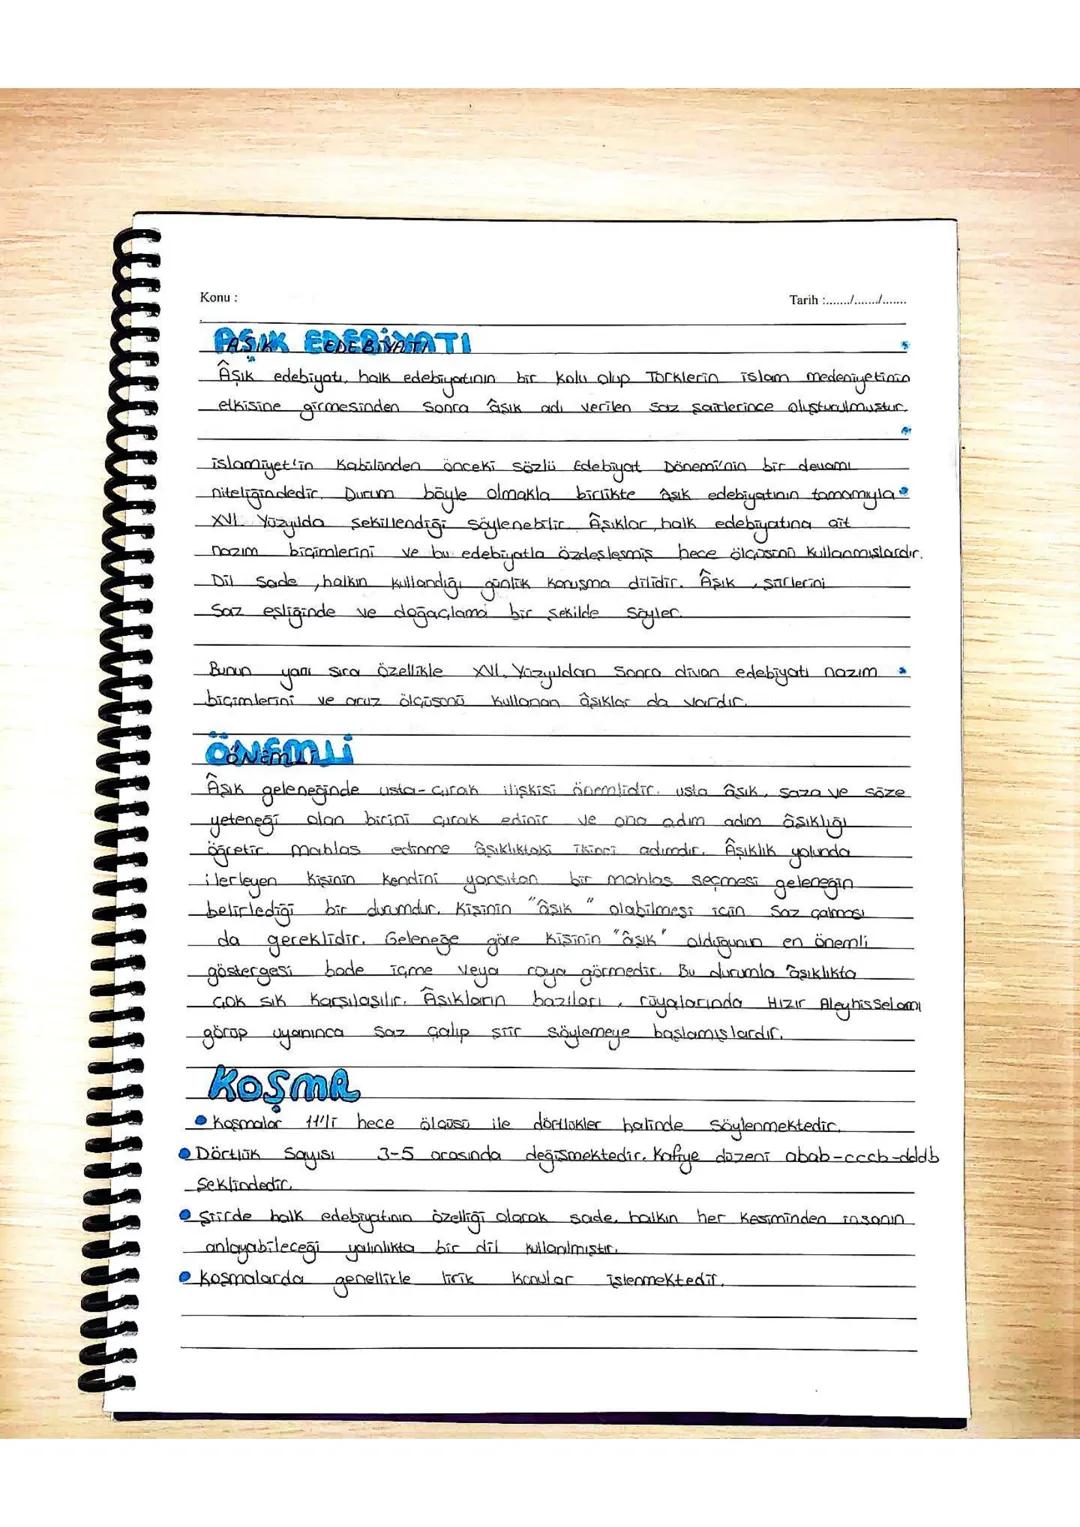 Konu :
Tarih :......./......./.......
AŞIK EDEBİYATI
Âşık edebiyatı, halk edebiyatının bir kolu olup Türklerin islam medeniyetinin
etkisine girmesinden sonra âşık adı verilen saz şairlerince oluşturulmuştur.
islamiyet'in Kabülünden önceki sözlü Edebiyat Dönemi'nin bir devamı
niteliğindedir. Durum böyle olmakla birlikte âşık edebiyatının tamamıyla
XVI. Yüzyılda şekillendiği söylenebilir. Âşıklar, halk edebiyatına ait
nazım biçimlerini ve bu edebiyatla özdeşleşmiş hece ölçüsünü kullanmışlardır.
Dil sade, halkın kullandığı günlük konuşma dilidir. Âşık, şiirlerini
Saz eşliğinde ve doğaçlama bir şekilde söyler.
Bunun yanı sıra özellikle XVI. Yüzyıldan sonra divan edebiyatı nazım
biçimlerini ve aruz ölçüsünü kullanan âşıklar da vardır.
ÖNEMLİ
Âşık geleneğinde usta-çırak ilişkisi önemlidir. usta âşık, saza ve söze
yeteneği olan birini çırak edinir ve ona adım adım âşıklığı
öğretir. mahlas edinme âşıklıktaki ikinci adımdır. Âşıklık yolunda
ilerleyen kişinin kendini yansıtan bir mahlas seçmesi geleneğin
belirlediği bir durumdur. Kişinin "âşık" olabilmesi için saz çalması
da gereklidir. Geleneğe göre kişinin "âşık" olduğunun en önemli
göstergesi bade içme veya rüya görmedir. Bu durumla âşıklıkta
çok sık karşılaşılır. Âşıkların bazıları, rüyalarında Hızır Aleyhisselamı
görüp uyanınca saz çalıp şiir söylemeye başlamışlardır.
KOŞMA
Koşmalar 11'li hece ölçüsü ile dörtlükler halinde söylenmektedir.
Dörtlük Sayısı 3-5 arasında değişmektedir. Kafiye düzeni abab-cccb-dddb
Şeklindedir.
Şiirde halk edebiyatının özelliği olarak sade, halkın her kesiminden insanın
anlayabileceği yalınlıkta bir dil kullanılmıştır.
Koşmalarda genellikle lirik konular işlenmektedir.